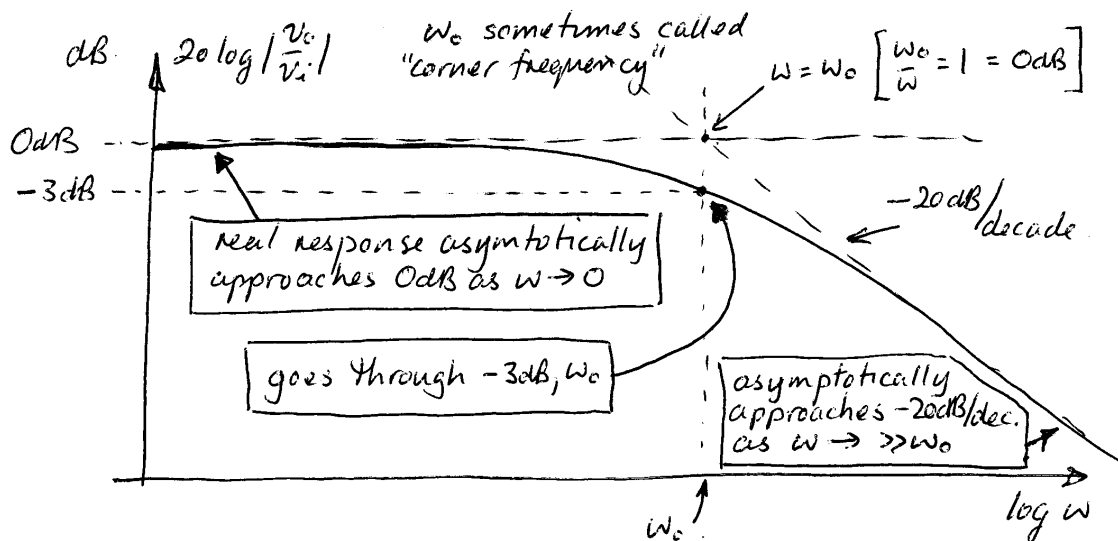 dB
20 log |v₀/vᵢ|
w₀ sometimes called
"corner frequency"
w = w₀ [w₀/w = 1 = 0dB]
0dB
-3dB
-20dB/decade
real response asymtotically
approaches 0dB as w → 0
goes through -3dB, w₀
asymptotically
approaches -20dB/dec.
as w → >>w₀
log w
w₀